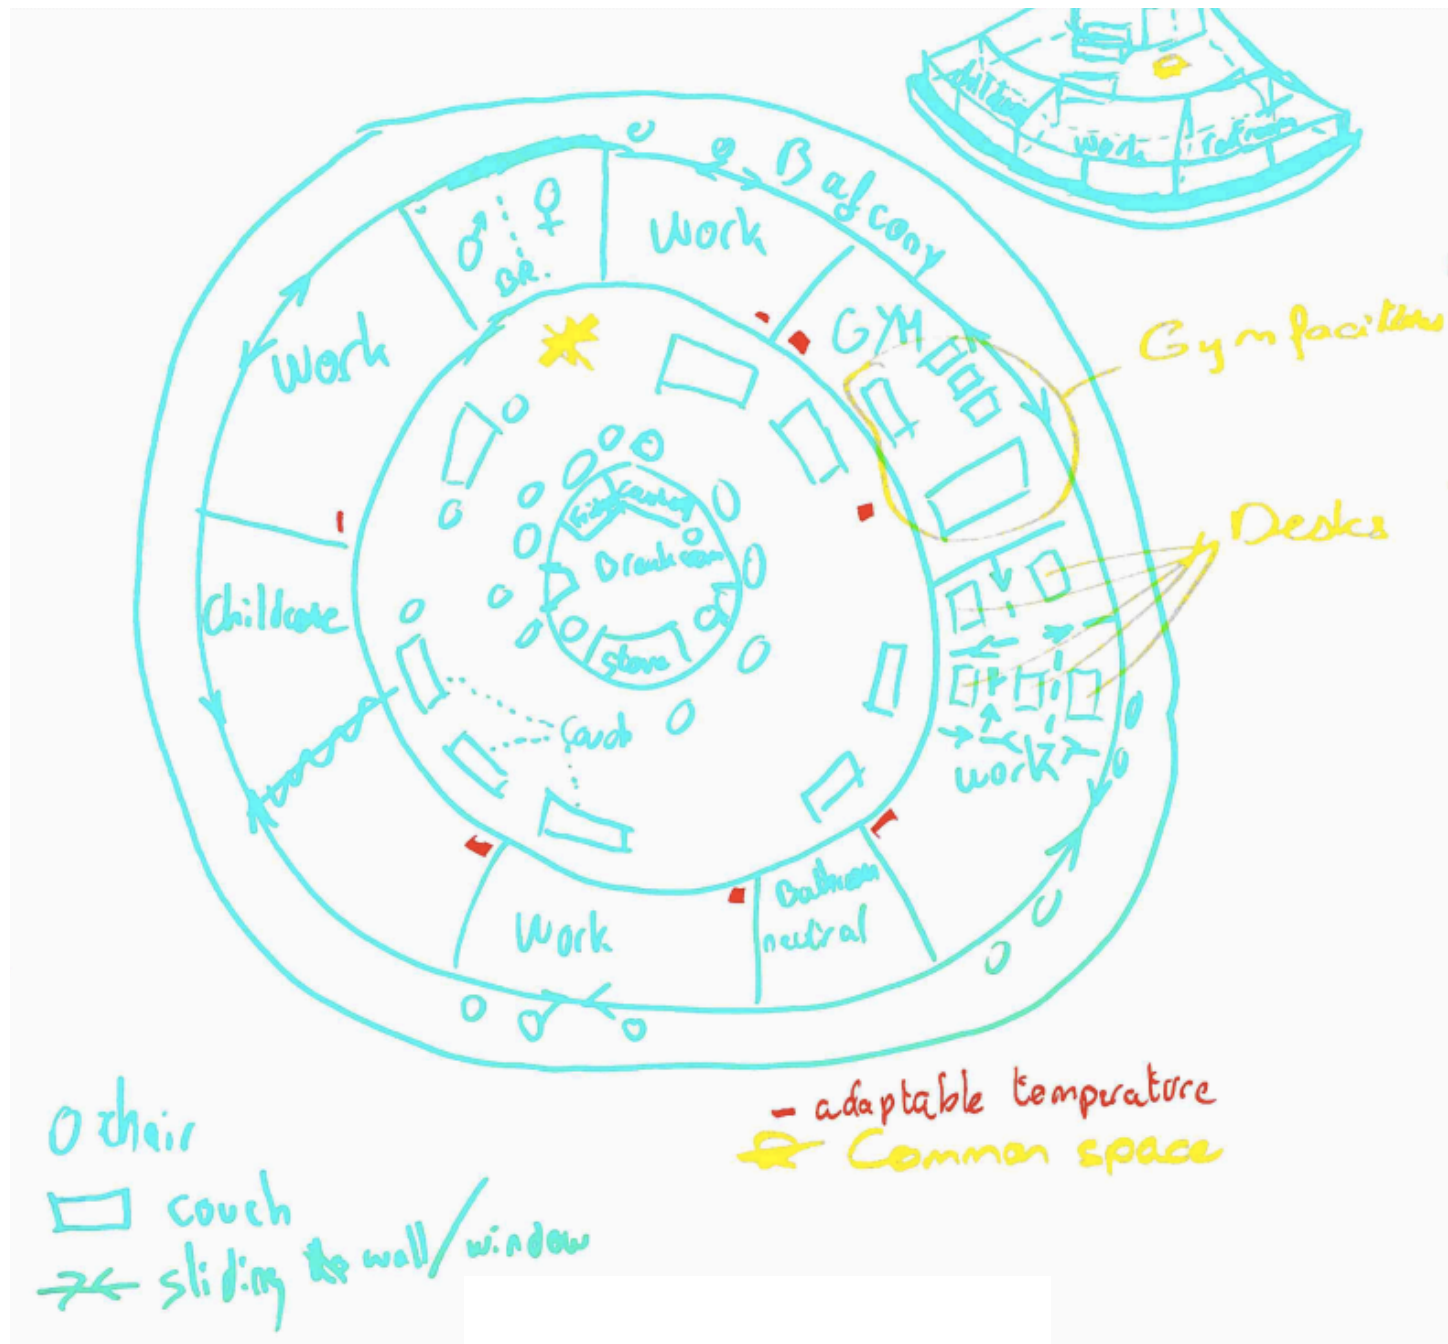 Work
restroom
Balcony
♂ ♀
BR.
Work
Work
GYM
Gym facilities
Desks
Breakroom
Childcare
Stove
Couch
Work
Work
Bathroom
neutral
O chair
couch
sliding wall/window
- adaptable temperature
Common space